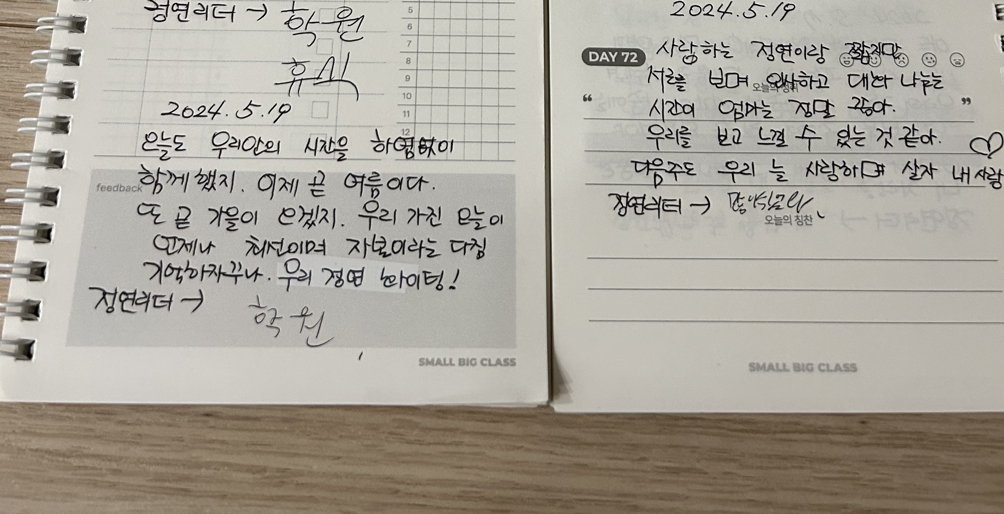 정연리더 → 학원
휴식
5
6
7
8
9
10
11
12
2024.5.19
오늘도 우리안의 시간을 하염없이
feedback
함께 했지. 이제 곧 여름이다.
또 곧 가을이 오겠지. 우리 가진 오늘이
언제나 최선이며 자본이라는 다짐
기억하자꾸나. 우리 정연 화이팅!
정연리더 → 학원
SMALL BIG CLASS
2024.5.19
DAY 72
사랑하는 정연이랑 짬지만
서로를 보며 대화 나누는
오늘의 정취
“ 시간이 엄마는 정말 좋아. ”
우리를 보고 느낄 수 있는 것 같아.
다음주도 우리 늘 사랑하며 살자 내 사랑
정연리더 →
오늘의 칭찬
SMALL BIG CLASS